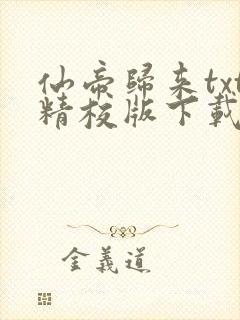 仙帝歸来txt
精校版下載
金義道